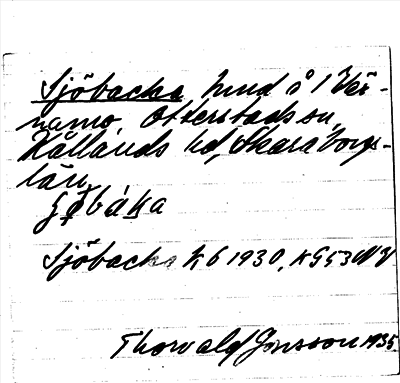 Sjöbacka hmd å 1 Vär-
namo, Otterstads sn,
Kållands hd, Skaraborgs-
län.
Sjöbacka Kb 1930, K953NV
Thorvald Jonsson 1935.